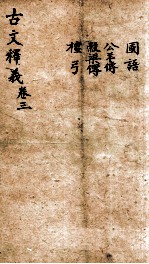 國語
公羊傳
穀梁傳
檀弓
古文釋義卷三